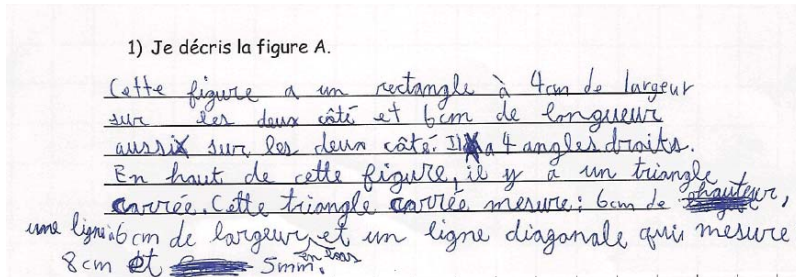 1) Je décris la figure A.
Cette figure a un rectangle à 4cm de largeur
sur les deux côté et 6cm de longueur
aussi sur les deux côté. Il a 4 angles droits.
En haut de cette figure, il y a un triangle
carrée. Cette triangle carrée mesure: 6cm de hauteur,
une ligne: 6cm de largeur, et un ligne diagonale qui mesure
8cm et 5mm. en bas